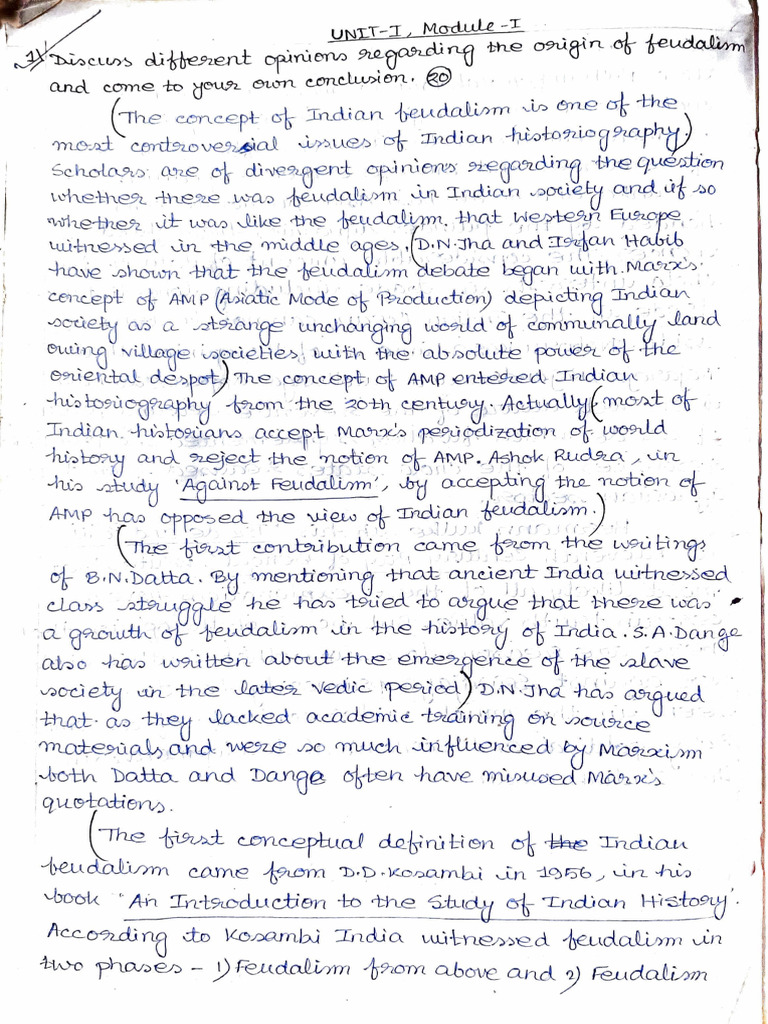 UNIT-I, Module-I
1) Discuss different opinions regarding the origin of feudalism
and come to your own conclusion. 20
(The concept of Indian feudalism is one of the
most controversial issues of Indian historiography.)
Scholars are of divergent opinions regarding the question
whether there was feudalism in Indian society and if so
whether it was like the feudalism that Western Europe
witnessed in the middle ages. (D.N.Jha and Irfan Habib
have shown that the feudalism debate began with Marx's
concept of AMP (Asiatic Mode of Production) depicting Indian
society as a strange unchanging world of communally land
owing village societies with the absolute power of the
oriental despot.) The concept of AMP entered Indian
historiography from the 20th century. Actually (most of
Indian historians accept Marx's periodization of world
history and reject the notion of AMP. Ashok Rudra, in
his study 'Against Feudalism', by accepting the notion of
AMP has opposed the view of Indian feudalism.)
(The first contribution came from the writings
of B.N.Datta. By mentioning that ancient India witnessed
class struggle he has tried to argue that there was
a growth of feudalism in the history of India. S.A.Dange
also has written about the emergence of the slave
society in the later vedic period) D.N.Jha has argued
that as they lacked academic training on source
materials and were so much influenced by Marxism
both Datta and Dange often have misused Marx's
quotations.
(The first conceptual definition of the Indian
feudalism came from D.D.Kosambi in 1956, in his
book 'An Introduction to the Study of Indian History'.
According to Kosambi India witnessed feudalism in
two phases - 1) Feudalism from above and 2) Feudalism